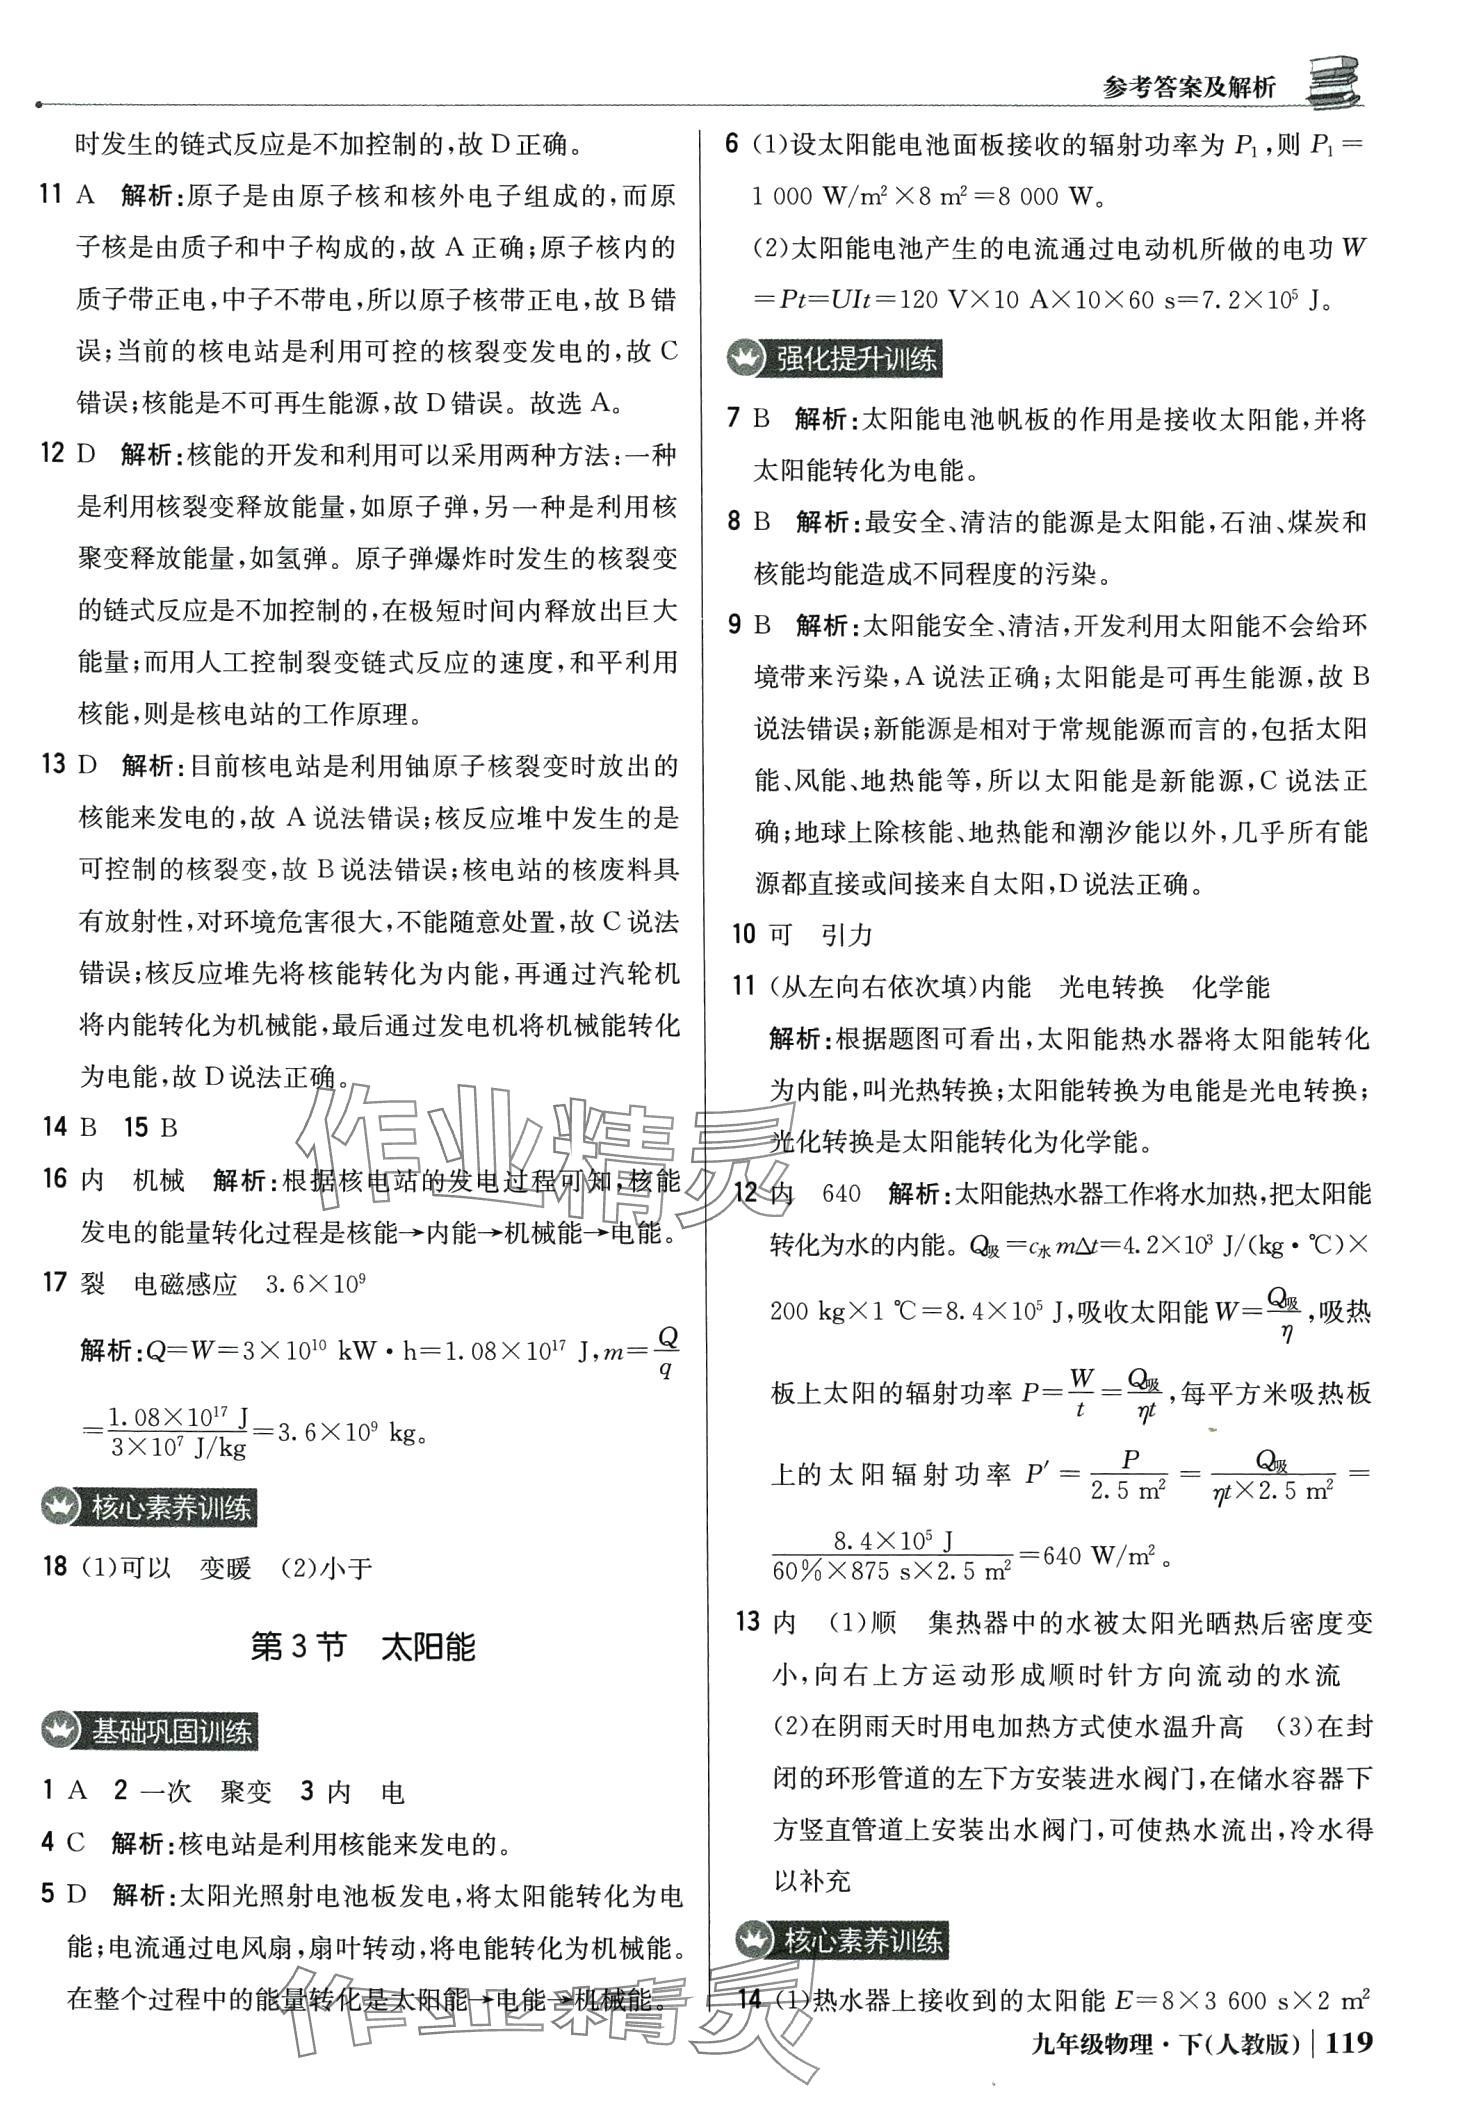 参考答案及解析
时发生的链式反应是不加控制的,故D正确。
11 A 解析:原子是由原子核和核外电子组成的,而原
子核是由质子和中子构成的,故A正确;原子核内的
质子带正电,中子不带电,所以原子核带正电,故B错
误;当前的核电站是利用可控的核裂变发电的,故C
错误;核能是不可再生能源,故D错误。故选A。
12 D 解析:核能的开发和利用可以采用两种方法:一种
是利用核裂变释放能量,如原子弹,另一种是利用核
聚变释放能量,如氢弹。原子弹爆炸时发生的核裂变
的链式反应是不加控制的,在极短时间内释放出巨大
能量;而用人工控制裂变链式反应的速度,和平利用
核能,则是核电站的工作原理。
13 D 解析:目前核电站是利用铀原子核裂变时放出的
核能来发电的,故A说法错误;核反应堆中发生的是
可控制的核裂变,故B说法错误;核电站的核废料具
有放射性,对环境危害很大,不能随意处置,故C说法
错误;核反应堆先将核能转化为内能,再通过汽轮机
将内能转化为机械能,最后通过发电机将机械能转化
为电能,故D说法正确。
14 B 15 B
16 内 机械 解析:根据核电站的发电过程可知,核能
发电的能量转化过程是核能→内能→机械能→电能。
17 裂 电磁感应 3.6×10⁹
解析:Q=W=3×10¹⁰ kW·h=1.08×10¹⁷ J,m=Q/q
=1.08×10¹⁷ J/3×10⁷ J/kg=3.6×10⁹ kg。
核心素养训练
18 (1)可以 变暖 (2)小于
第3节 太阳能
基础巩固训练
1 A 2 一次 聚变 3 内 电
4 C 解析:核电站是利用核能来发电的。
5 D 解析:太阳光照射电池板发电,将太阳能转化为电
能;电流通过电风扇,扇叶转动,将电能转化为机械能。
在整个过程中的能量转化是太阳能→电能→机械能。
6 (1)设太阳能电池面板接收的辐射功率为P₁,则P₁=
1 000 W/m²×8 m²=8 000 W。
(2)太阳能电池产生的电流通过电动机所做的电功W
=Pt=UIt=120 V×10 A×10×60 s=7.2×10⁵ J。
强化提升训练
7 B 解析:太阳能电池帆板的作用是接收太阳能,并将
太阳能转化为电能。
8 B 解析:最安全、清洁的能源是太阳能,石油、煤炭和
核能均能造成不同程度的污染。
9 B 解析:太阳能安全、清洁,开发利用太阳能不会给环
境带来污染,A说法正确;太阳能是可再生能源,故B
说法错误;新能源是相对于常规能源而言的,包括太阳
能、风能、地热能等,所以太阳能是新能源,C说法正
确;地球上除核能、地热能和潮汐能以外,几乎所有能
源都直接或间接来自太阳,D说法正确。
10 可 引力
11 (从左向右依次填)内能 光电转换 化学能
解析:根据题图可看出,太阳能热水器将太阳能转化
为内能,叫光热转换;太阳能转换为电能是光电转换;
光化转换是太阳能转化为化学能。
12 内 640 解析:太阳能热水器工作将水加热,把太阳能
转化为水的内能。Q吸=c水mΔt=4.2×10³ J/(kg·℃)×
200 kg×1 ℃=8.4×10⁵ J,吸收太阳能W=Q吸/η,吸热
板上太阳的辐射功率P=W/t=Q吸/ηt,每平方米吸热板
上的太阳辐射功率P′=P/2.5 m²=Q吸/ηt×2.5 m²=
8.4×10⁵ J/60%×875 s×2.5 m²=640 W/m²。
13 内 (1)顺 集热器中的水被太阳光晒热后密度变
小,向右上方运动形成顺时针方向流动的水流
(2)在阴雨天时用电加热方式使水温升高 (3)在封
闭的环形管道的左下方安装进水阀门,在储水容器下
方竖直管道上安装出水阀门,可使热水流出,冷水得
以补充
核心素养训练
14 (1)热水器上接收到的太阳能E=8×3 600 s×2 m²
九年级物理·下(人教版) | 119
作业精灵
作业精灵